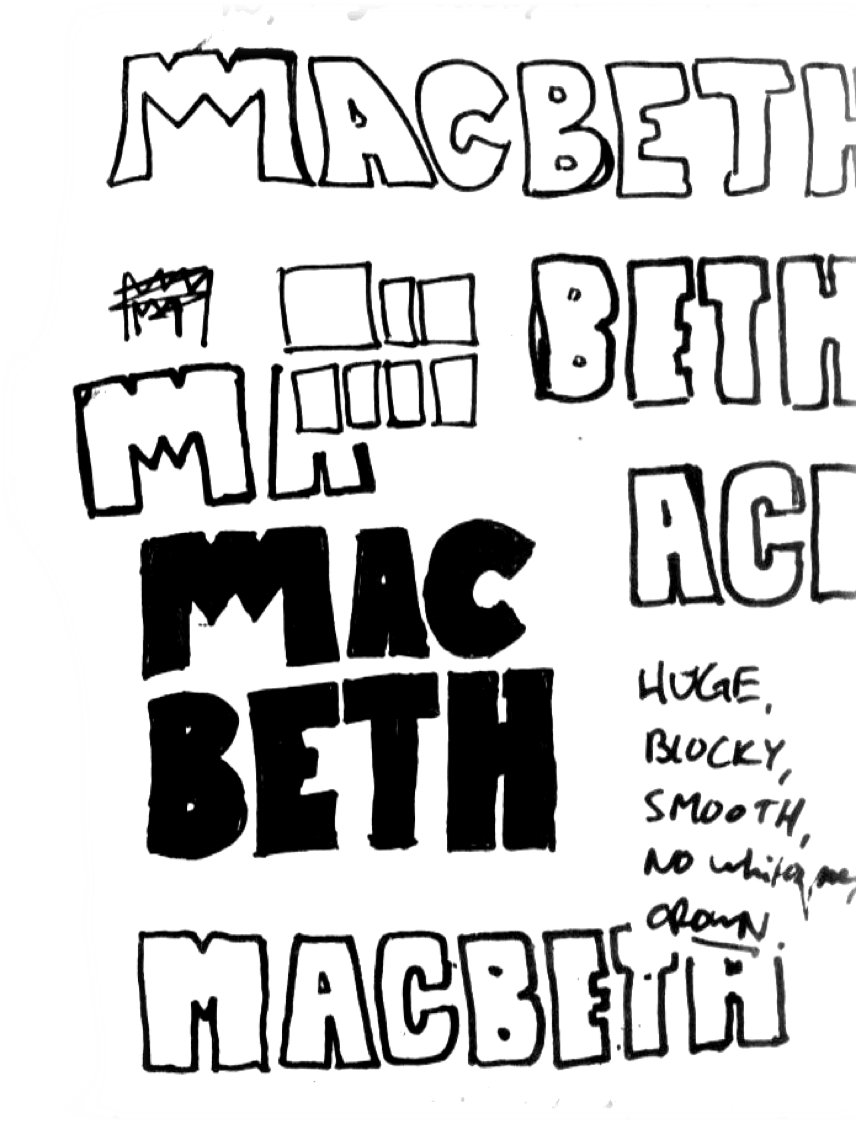 MACBETH
BETH
MA
AC
MAC
BETH
HUGE,
BLOCKY,
SMOOTH,
NO
CROWN.
MACBETH